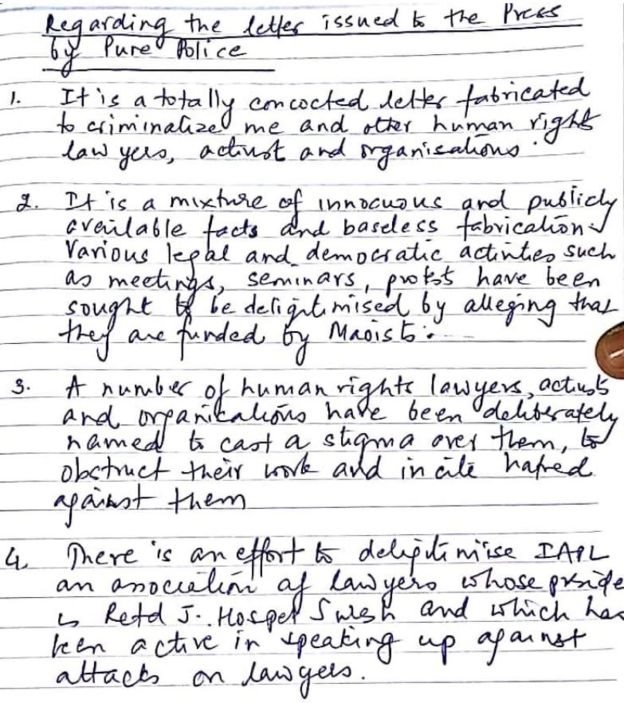 Regarding the letter issued to the Press
by Pune Police
1. It is a totally concocted letter fabricated
to criminalize me and other human right
lawyers, activist and organisations.
2. It is a mixture of innocuous and publicly
available facts and baseless fabrication.
Various legal and democratic activities such
as meetings, seminars, protest have been
sought to be deligitimised by alleging that
they are funded by Maoists.
3. A number of human rights lawyers, activists
and organisations have been deliberately
named to cast a stigma over them, to
obstruct their work and incite hatred
against them
4. There is an effort to delegitimise IAPL
an association of lawyers whose preside
is Retd J. Hospet Suresh and which has
been active in speaking up against
attacks on lawyers.